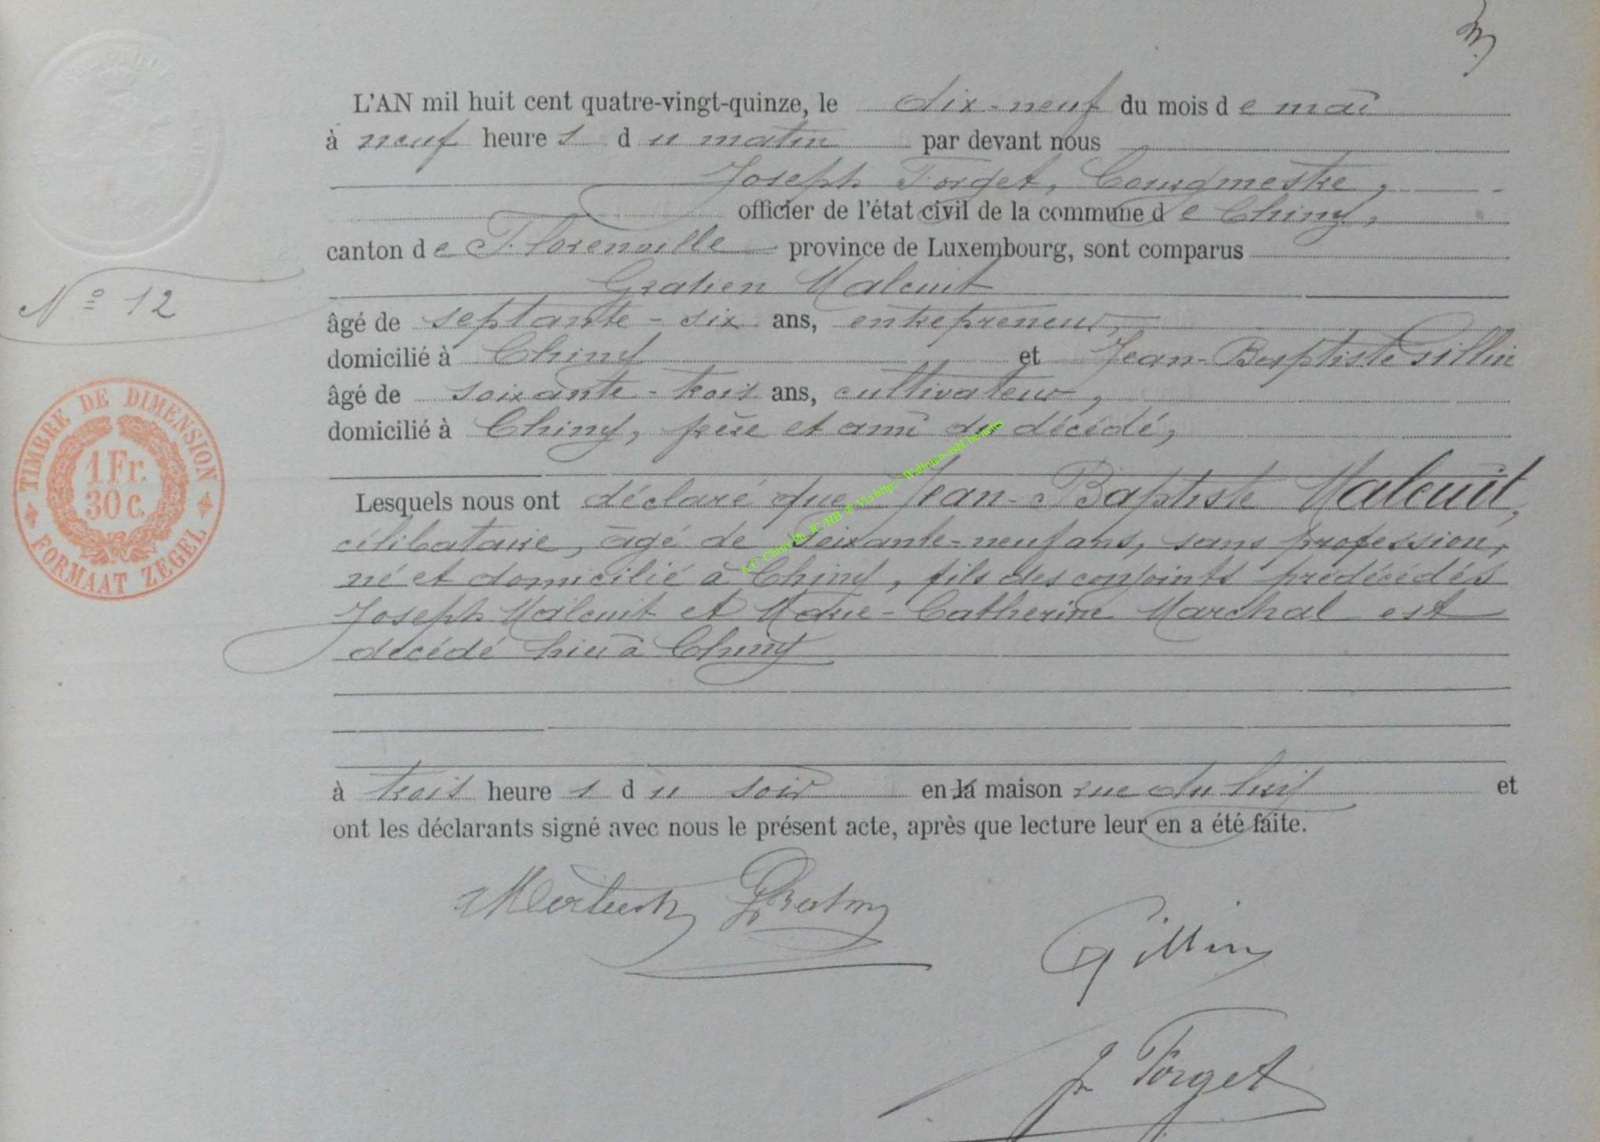 L'AN mil huit cent quatre-vingt-quinze, le dix-neuf du mois d e mai
à neuf heure s d u matin par devant nous
Joseph Forget, Bourgmestre,
officier de l'état civil de la commune d e Chiny,
canton d e Florenville province de Luxembourg, sont comparus
N° 12
Gratien Maleuit
âgé de septante-six ans, entrepreneur,
domicilié à Chiny et Jean-Baptiste Gillin
âgé de soixante-trois ans, cultivateur,
domicilié à Chiny, frère et ami du décédé,
TIMBRE DE DIMENSION
1 Fr.
30 c.
FORMAAT ZEGEL
Lesquels nous ont déclaré que Jean-Baptiste Maleuit,
célibataire, âgé de soixante-neuf ans, sans profession,
né et domicilié à Chiny, fils des conjoints prédécédés
Joseph Maleuit et Marie-Catherine Marchal est
décédé hier à Chiny
à trois heure s d u soir en la maison rue du
et
ont les déclarants signé avec nous le présent acte, après que lecture leur en a été faite.
Gillin
J. Forget